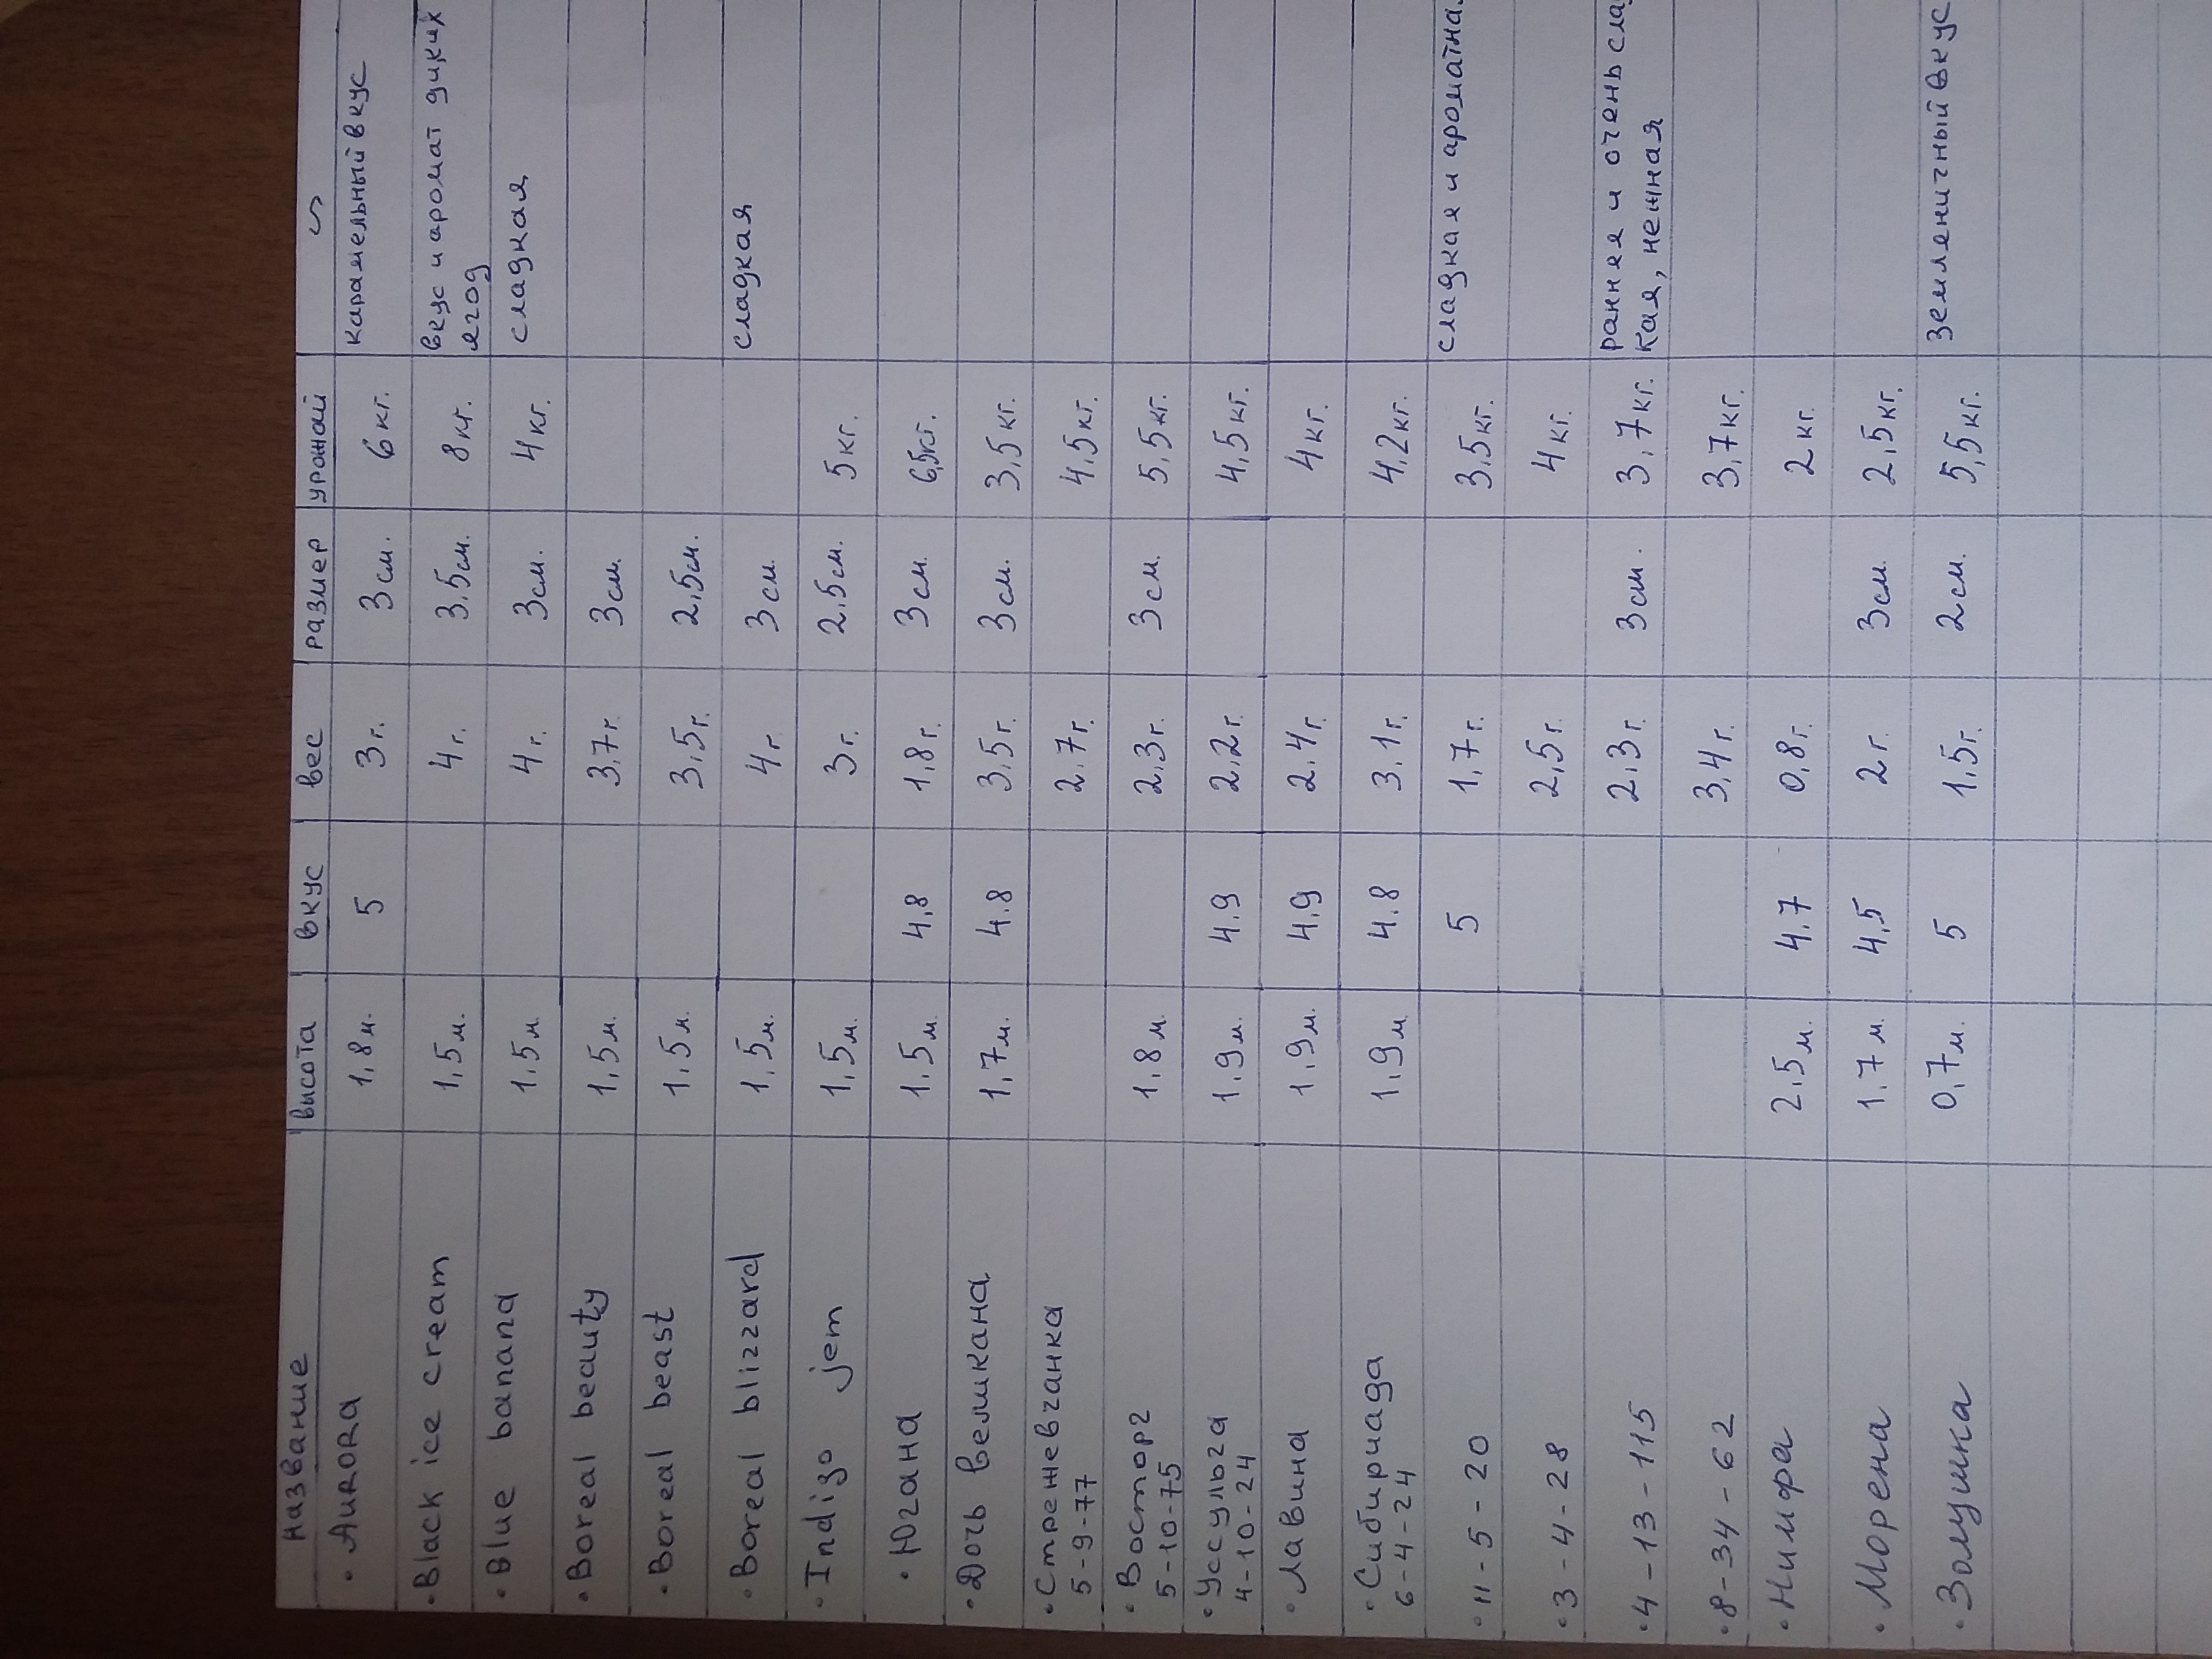 название высота вкус вес размер урожай
• AURORA 1,8м. 5 3г. 3см. 6кг. карамельный вкус
• Black ice cream 1,5м. 4г. 3,5см. 8кг. вкус и аромат диких
ягод
• Blue banana 1,5м. 4г. 3см. 4кг. сладкая
• Boreal beauty 1,5м. 3,7г. 3см.
• Boreal beast 1,5м. 3,5г. 2,5см.
• Boreal blizzard 1,5м. 4г. 3см. сладкая
• Indigo jem 1,5м. 3г. 2,5см. 5кг.
• Югана 1,5м. 4,8 1,8г. 3см. 6,5кг.
• Дочь великана 1,7м. 4.8 3,5г. 3см. 3,5кг.
• Стрежевчанка 2.7г. 4,5кг.
5-9-77
• Восторг 1,8м. 2,3г. 3см. 5,5кг.
5-10-75
• Уссульга 1.9м. 4.9 2,2г. 4,5кг.
4-10-24
• Лавина 1,9м. 4,9 2.4г. 4кг.
• Сибириада 1.9м. 4.8 3.1г. 4,2кг.
6-4-24
• 11-5-20 5 1,7г. 3,5кг. сладкая и ароматна
• 3-4-28 2,5г. 4кг.
• 4-13-115 2,3г. 3см. 3,7кг. ранняя и очень сла
кая, нежная
• 8-34-62 3,4г. 3,7кг.
• Нимфа 2.5м. 4.7 0,8г. 2кг.
• Морена 1.7м. 4,5 2г. 3см. 2,5кг.
• Золушка 0,7м. 5 1,5г. 2см. 5,5кг. земленичный вкус